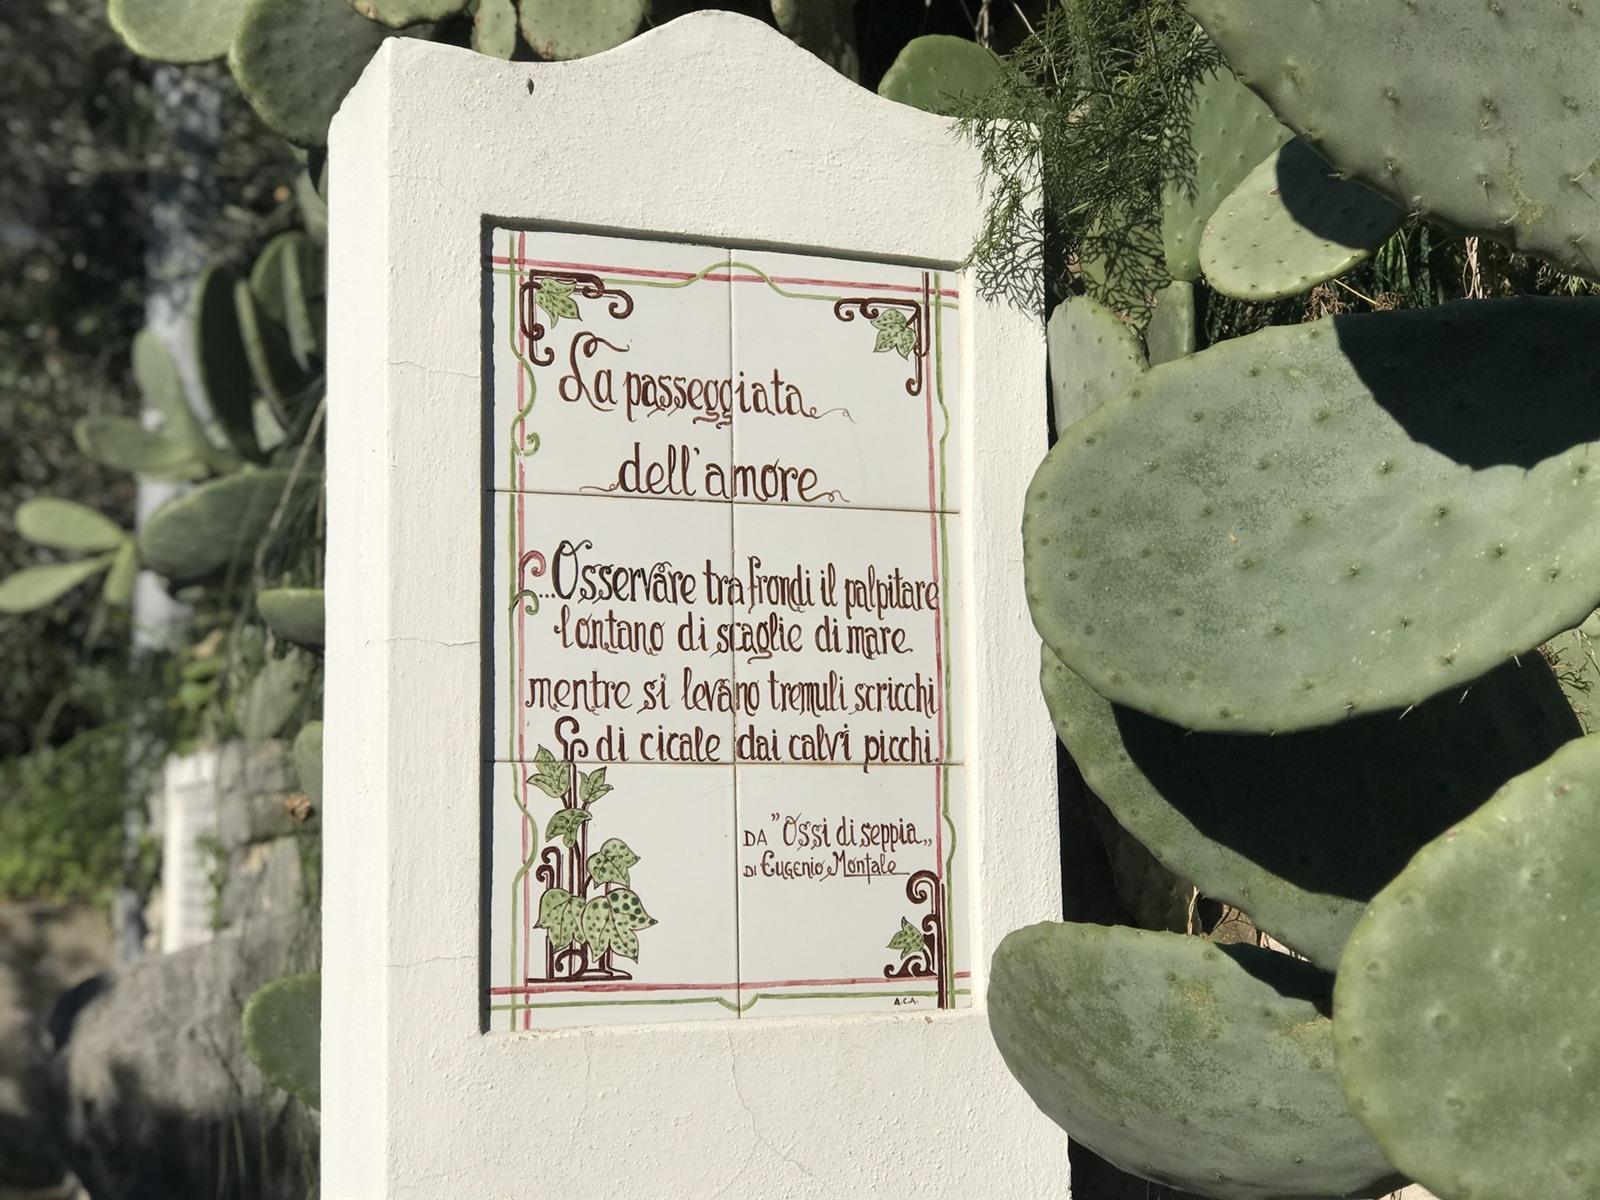 La passeggiata
dell'amore
...Osservare tra frondi il palpitare
lontano di scaglie di mare
mentre si levano tremuli scricchi
di cicale dai calvi picchi.
DA "Ossi di seppia„
DI EUGENIO Montale
A.C.A.